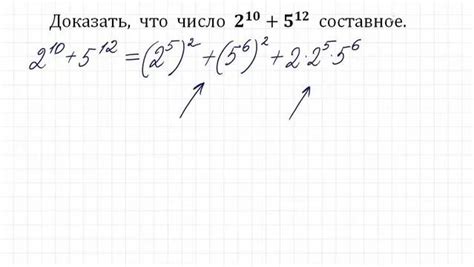 Доказать, что число 2¹⁰ + 5¹² составное.
2¹⁰ + 5¹² = (2⁵)² + (5⁶)² + 2·2⁵·5⁶